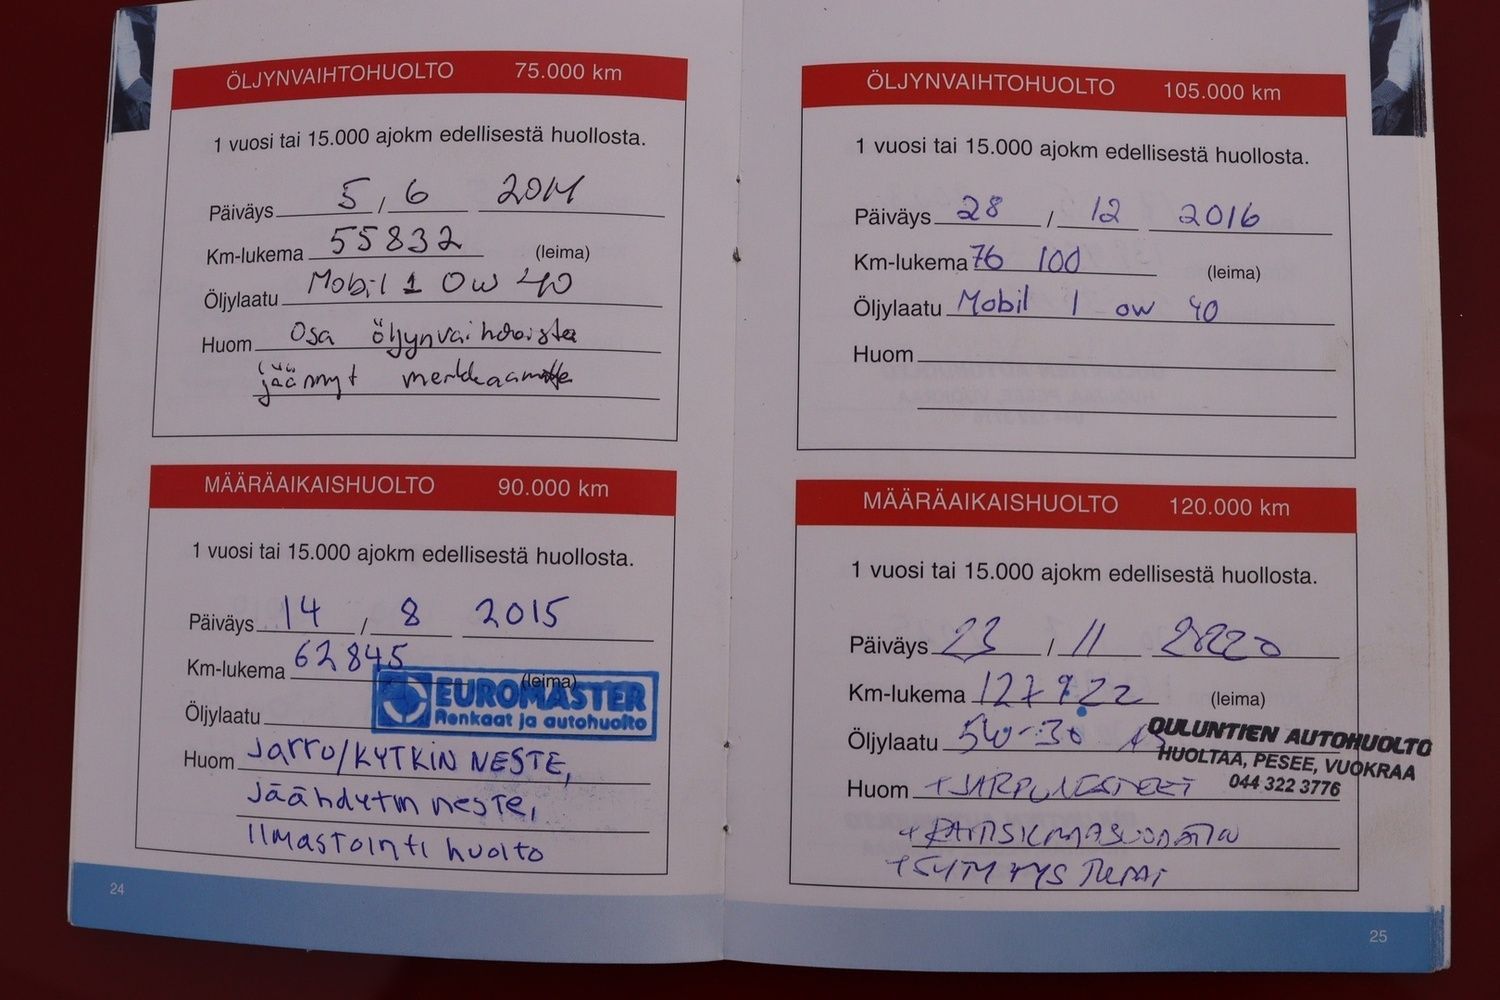 ÖLJYNVAIHTOHUOLTO 75.000 km
1 vuosi tai 15.000 ajokm edellisestä huollosta.
Päiväys 5 / 6 2014
Km-lukema 55832 (leima)
Öljylaatu Mobil 1 0w 40
Huom Osa öljynvaihdoista
jäännyt merkkaamatta
MÄÄRÄAIKAISHUOLTO 90.000 km
1 vuosi tai 15.000 ajokm edellisestä huollosta.
Päiväys 14 / 8 2015
Km-lukema 62845 (leima)
EUROMASTER
Renkaat ja autohuolto
Öljylaatu
Huom Jarru/KYTKIN NESTE,
Jäähdytin neste,
Ilmastointi huolto
24
ÖLJYNVAIHTOHUOLTO 105.000 km
1 vuosi tai 15.000 ajokm edellisestä huollosta.
Päiväys 28 / 12 2016
Km-lukema 76 100 (leima)
Öljylaatu Mobil 1 0w 40
Huom
MÄÄRÄAIKAISHUOLTO 120.000 km
1 vuosi tai 15.000 ajokm edellisestä huollosta.
Päiväys 23 / 11 2020
Km-lukema 127922 (leima)
Öljylaatu 5W-30
OULUNTIEN AUTOHUOLTO
HUOLTAA, PESEE, VUOKRAA
044 322 3776
Huom + JARRUNESTEET
+ RAITISILMASUODATIN
+ SYTYTYSTULPAT
25